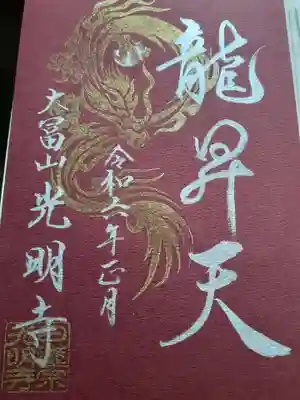 龍昇天
令和六年正月
大冨山光明寺